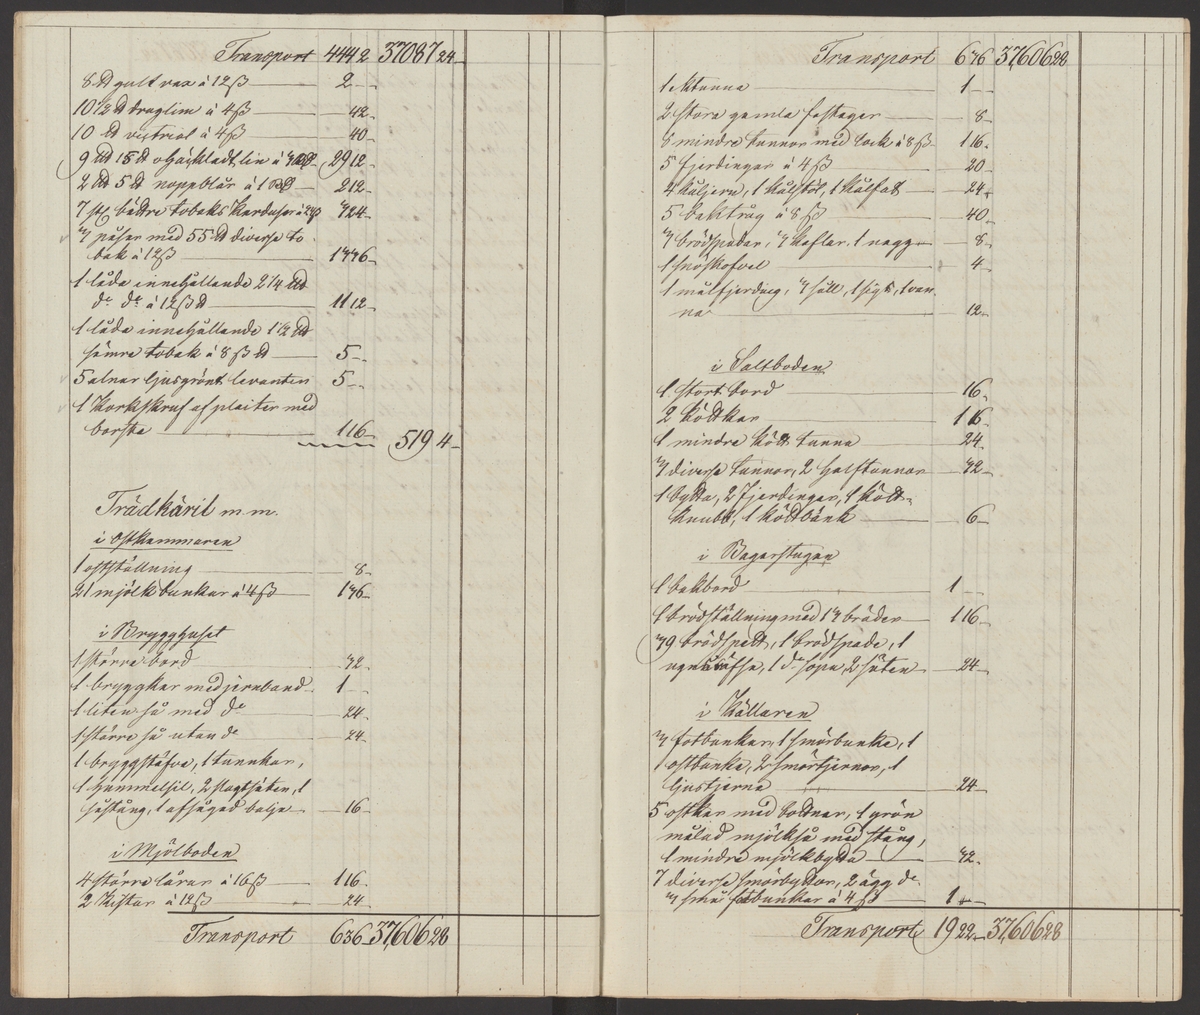 Transport 444 2 37087 24
8 ℔ gult vax à 12 ß 2 –
10 1/2 ℔ draglim à 4 ß 42
10 ℔ victriol à 4 ß 40
9 L℔ 18 ℔ ohäckladt lin à 29 12
2 L℔ 5 ℔ noppblår à 1 2 12
7 st bättre tobaks karduser à
påsar med 55 ℔ diverse to-
bak à 12 ß
1 låda innehållande 2 1/4 L℔
do do à 12 ß ℔ 11 12
1 låda innehållande 1 1/2 L℔
sämre tobak à 8 ß ℔ 5 –
5 alnar ljusgrönt levantin 5 –
1 korkskruf af plaiter med
borste 1 16 519 4
Trädkäril m.m.
i Ostkammaren
1 ostställning 8
21 mjölkbunkar à 4 ß 1 36
i Brygghuset
1 större bord 32
1 bryggkar med jernband 1 –
1 liten så med do 24
1 större så utan do 24
1 bryggstäfva, 1 tunnkar,
1 hummelsil, 2 slagtsåten, 1
såstång, 1 afsågad balja 16
i Mjölboden
4 större lårar à 16 ß 1 16
2 kistor à 12 ß 24
Transport 6 36 37,606 28
Transport 6 36 37,606 28
1 ektunna 1 –
2 stora gamla fastager 8
8 mindre tunnor med lock à 8 ß 1 16
5 fjerdingar à 4 ß 20
2 kåljern, 1 kålstöt, 1 kålfat 24
5 baktråg à 8 ß 40
3 brödspadar, 3 kaflar, 1 nagg 8
1 snöskofvel 4
1 målfjerding, 3 såll, 1 sigt, 1 van-
na 12
i Saltboden
1 stort bord 16
2 köttkar 1 16
1 mindre kött tunna 24
3 diverse tunnor, 2 halftunnor 32
1 bytta, 2 fjerdingar, 1 kött-
knubb, 1 köttbänk 6
i Bagarstugan
1 bakbord 1 –
1 brödställning med 13 bräder 1 16
39 brödspett, 1 brödspade, 1
1 do sopa, 2 såten 24
i Källaren
3 fotbunkar, 1 smörbunke, 1
1 ostbunke, 2 smörtjernor, 1
ljustjerna 24
5 ostkar med bottnar, 1 grön
målad mjölkså med stång,
1 mindre mjölkbytta 32
7 diverse smörbyttor, 2 ägg do
3 små fotbunkar à 4 ß 1 –
Transport 19 22 37,606 28